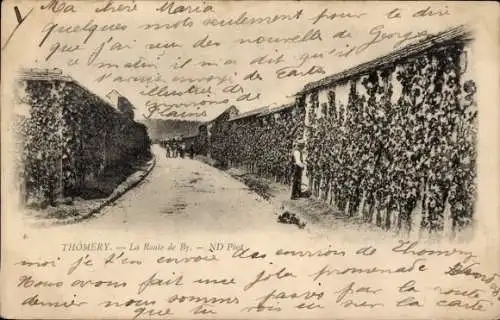 Ma chère Maria
quelques mots seulement pour te dire
que j'ai eu des nouvelle de Georges
ce matin il me dit qu'il
t'avais envoyé des carte
illustrée des
environs de
Reims
THOMERY. — La Route de By. — ND Phot
moi je t'en envoie des environs d'ici
Nous avons fait une jolie promenade
dernier nous sommes passés par la route
que tu vois sur la carte